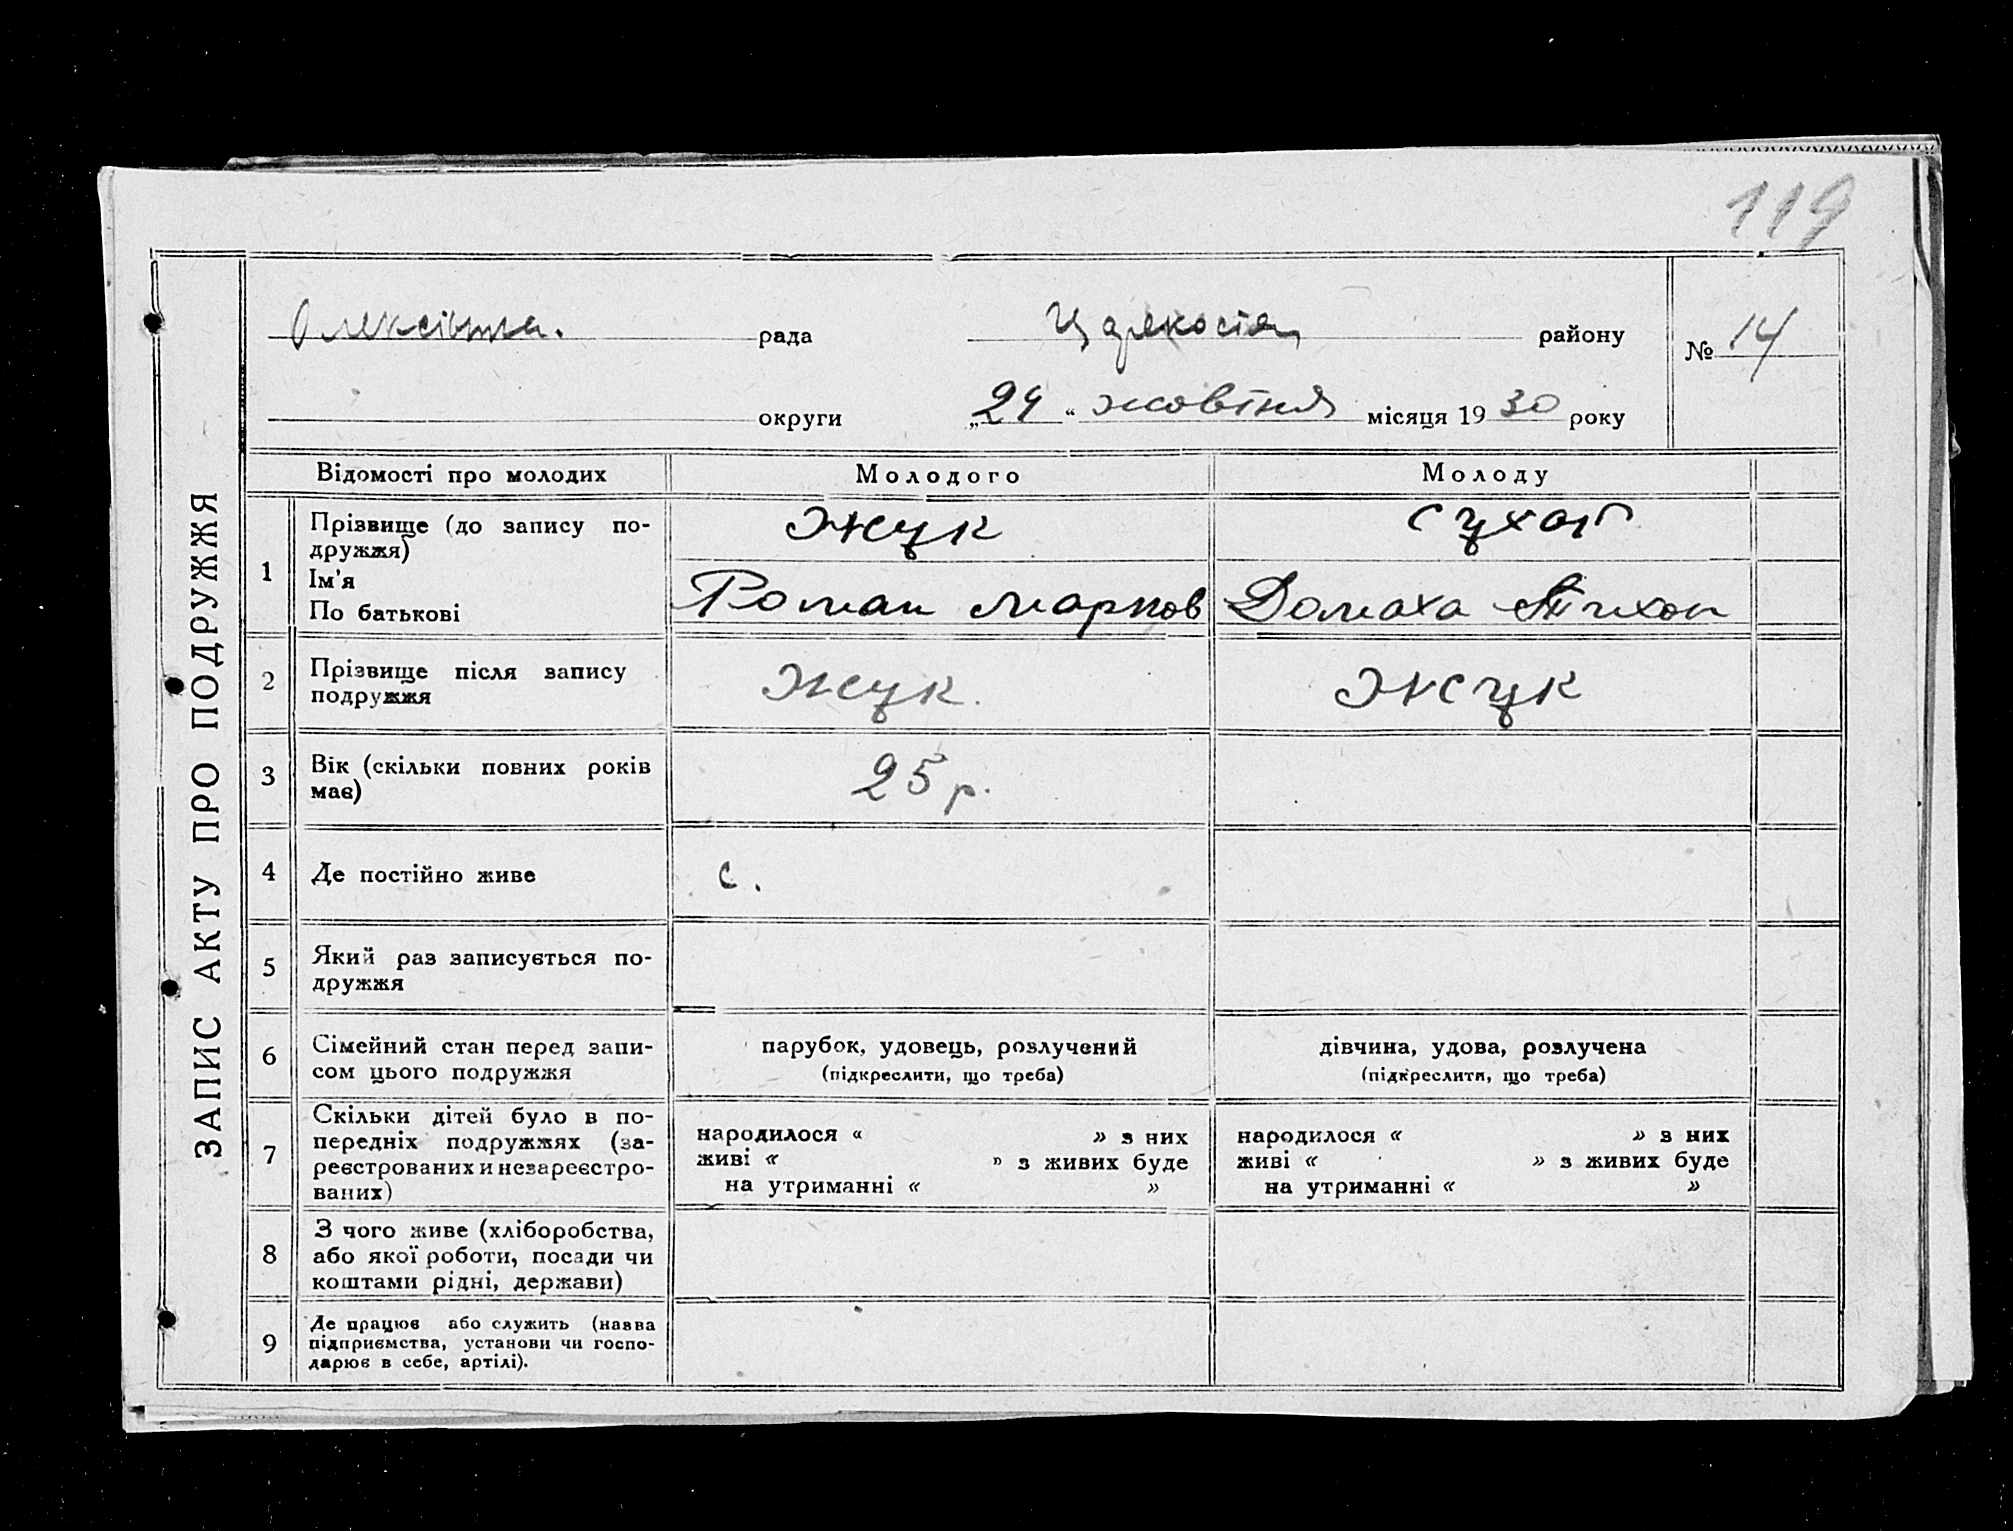 119
рада
району
№ 14
округи
„24“ жовтня місяця 1930 року
ЗАПИС АКТУ ПРО ПОДРУЖЖЯ
Відомості про молодих
Молодого
Молоду
1
Прізвище (до запису по-
дружжя)
Ім'я
По батькові
Жук
Роман Марков
Домаха Тихон
2
Прізвище після запису
подружжя
Жук.
Жук
3
Вік (скільки повних років
має)
25 р.
4
Де постійно живе
с.
5
Який раз записується по-
дружжя
6
Сімейний стан перед запи-
сом цього подружжя
парубок, удовець, розлучений
(підкреслити, що треба)
дівчина, удова, розлучена
(підкреслити, що треба)
7
Скільки дітей було в по-
передніх подружжях (за-
реєстрованих и незареєстро-
ваних)
народилося « » з них
живі « » з живих буде
на утриманні « »
народилося « » з них
живі « » з живих буде
на утриманні « »
8
З чого живе (хліборобства,
або якої роботи, посади чи
коштами рідні, держави)
9
Де працює або служить (назва
підприємства, установи чи госпо-
дарює в себе, артілі).